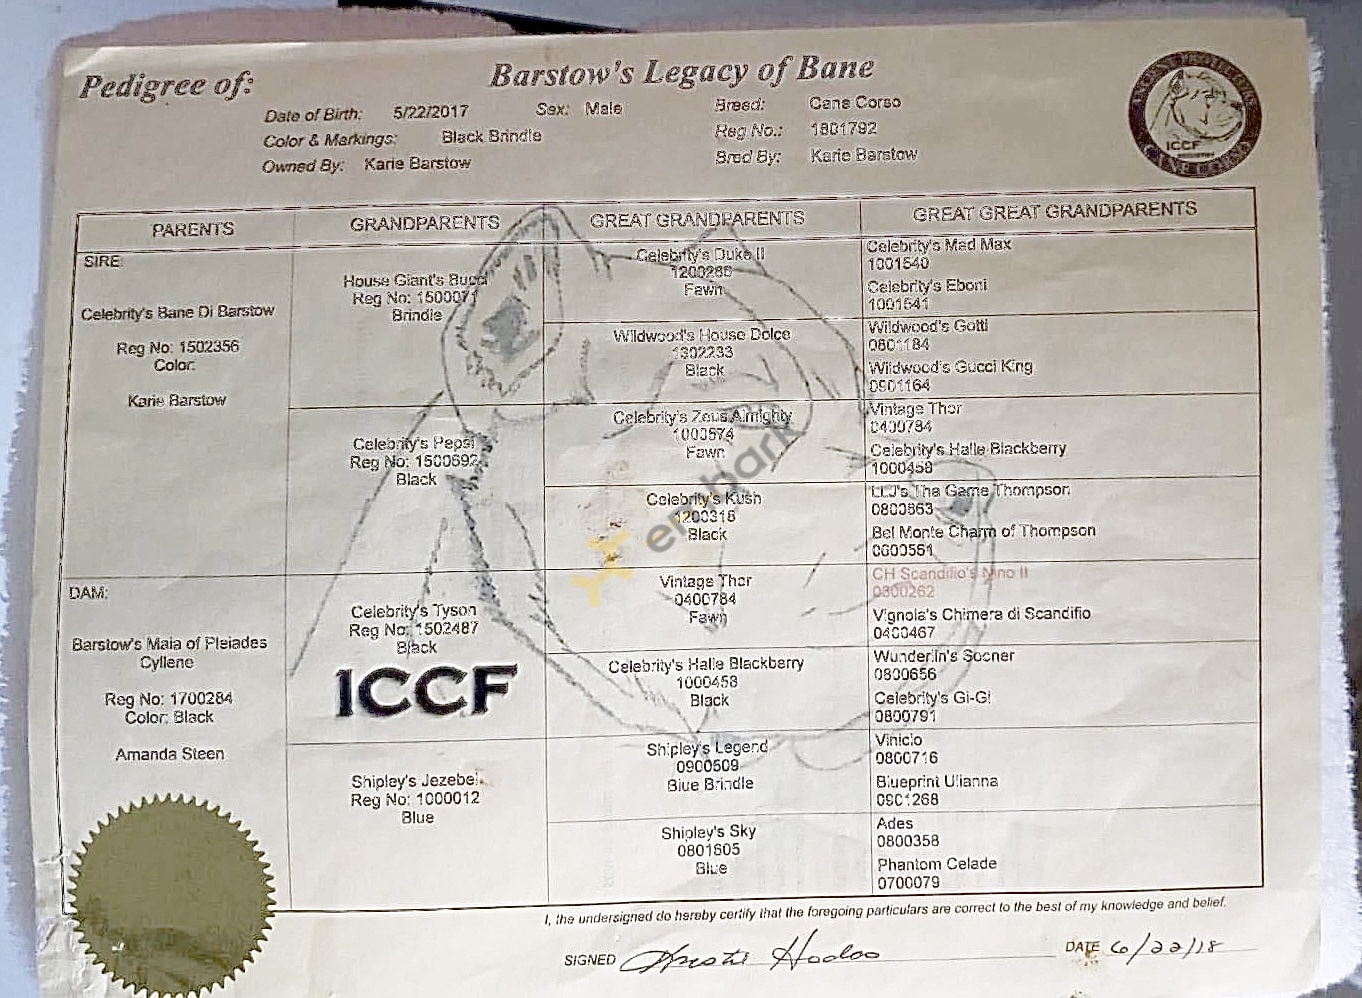 Pedigree of:
Barstow's Legacy of Bane
Date of Birth: 5/22/2017 Sex: Male Breed: Cane Corso
Color & Markings: Black Brindle Reg No.: 1801792
Owned By: Karie Barstow Bred By: Karie Barstow
ICCF
CANE CORSO
PARENTS GRANDPARENTS GREAT GRANDPARENTS GREAT GREAT GRANDPARENTS
SIRE:
Celebrity's Bane Di Barstow
Reg No: 1502356
Color:
Karie Barstow
DAM:
Barstow's Maia of Pleiades
Cyllene
Reg No: 1700284
Color: Black
Amanda Steen
House Giant's Bucci
Reg No: 1500071
Brindle
Celebrity's Pepsi
Reg No: 1500692
Black
Celebrity's Tyson
Reg No: 1502487
Black
ICCF
Shipley's Jezebel
Reg No: 1000012
Blue
Celebrity's Duke II
1200286
Fawn
Wildwood's House Dolce
1302233
Black
Celebrity's Zeus Almighty
1000574
Fawn
Celebrity's Kush
1200316
Black
Vintage Thor
0400784
Fawn
Celebrity's Halle Blackberry
1000458
Black
Shipley's Legend
0900509
Blue Brindle
Shipley's Sky
0801605
Blue
Celebrity's Mad Max
1001540
Celebrity's Eboni
1001541
Wildwood's Gotti
0801184
Wildwood's Gucci King
0901164
Vintage Thor
0400784
Celebrity's Halle Blackberry
1000458
LLJ's The Game Thompson
0800863
Bel Monte Charm of Thompson
0600561
CH Scandifio's Nino II
0300262
Vignola's Chimera di Scandifio
0400467
Wunderlin's Sooner
0800656
Celebrity's Gi-Gi
0800791
Vinicio
0800716
Blueprint Ulianna
0901268
Ades
0800358
Phantom Celade
0700079
embark
I, the undersigned do hereby certify that the foregoing particulars are correct to the best of my knowledge and belief.
SIGNED DATE 6/22/18